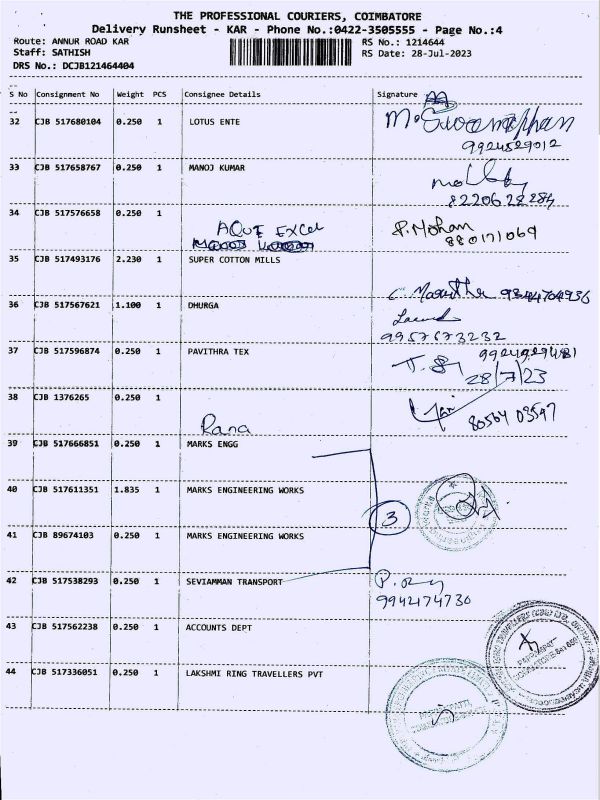 THE PROFESSIONAL COURIERS, COIMBATORE
Delivery Runsheet - KAR - Phone No.:0422-3505555 - Page No.:4
Route: ANNUR ROAD KAR RS No.: 1214644
Staff: SATHISH RS Date: 28-Jul-2023
DRS No.: DCJB121464404
S No Consignment No Weight PCS Consignee Details Signature
32 CJB 517680104 0.250 1 LOTUS ENTE
9924529012
33 CJB 517658767 0.250 1 MANOJ KUMAR
8220628284
34 CJB 517576658 0.250 1 P. Mohan
AQUE EXCel 880171069
35 CJB 517493176 2.230 1 SUPER COTTON MILLS
36 CJB 517567621 1.100 1 DHURGA
9957673232
37 CJB 517596874 0.250 1 PAVITHRA TEX
28/7/23
38 CJB 1376265 0.250 1
Rana
39 CJB 517666851 0.250 1 MARKS ENGG
40 CJB 517611351 1.835 1 MARKS ENGINEERING WORKS
3
41 CJB 89674103 0.250 1 MARKS ENGINEERING WORKS
42 CJB 517538293 0.250 1 SEVIAMMAN TRANSPORT
9942174730
43 CJB 517562238 0.250 1 ACCOUNTS DEPT
44 CJB 517336051 0.250 1 LAKSHMI RING TRAVELLERS PVT